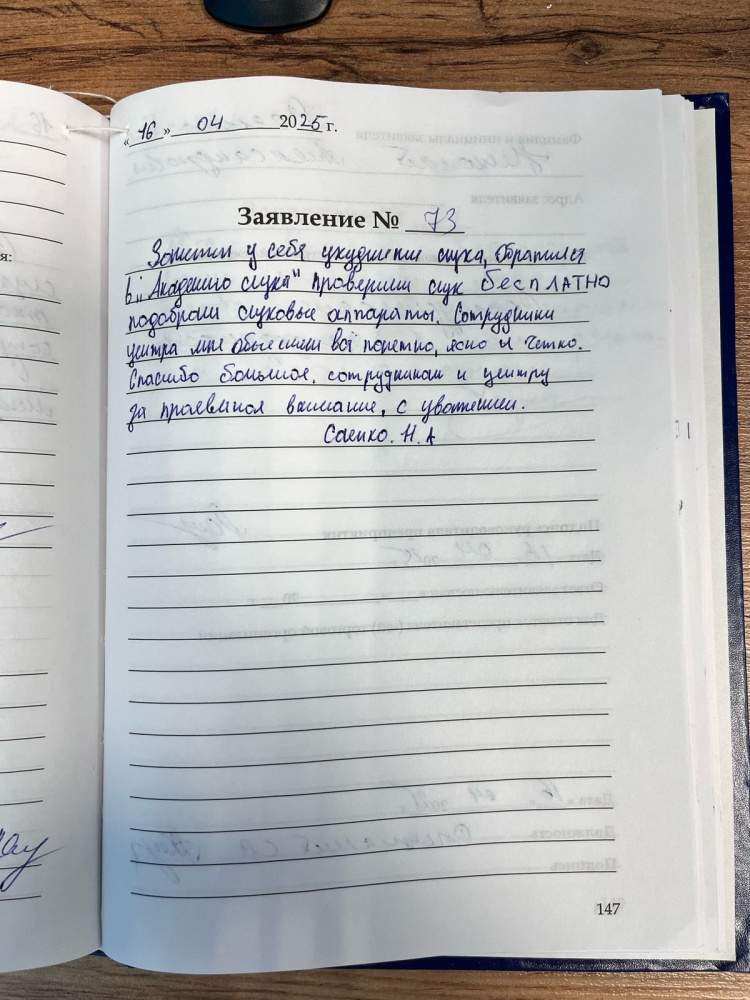 «16» 04 2025 г.
Заявление № 73
Заметил у себя ухудшение слуха, Обратился
в „Академию слуха" проверили слух БЕСПЛАТНО
подобрали слуховые аппараты. Сотрудники
центра мне объяснили всё понетно, ясно и четко.
Спасибо большое, сотрудникам и центру
за проявленое внимание, с уважением.
Саенко. Н. А
я:
147